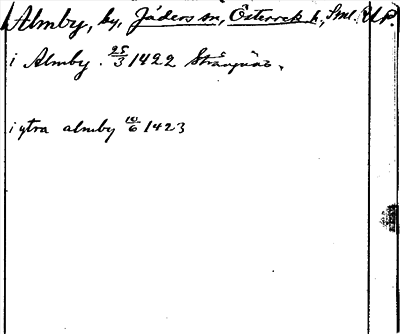 Almby, by, Jäders sn, Österrek h, Sml. RAp.
i Almby. 25/3 1422 Strängnäs.
i ytra almby 10/6 1423